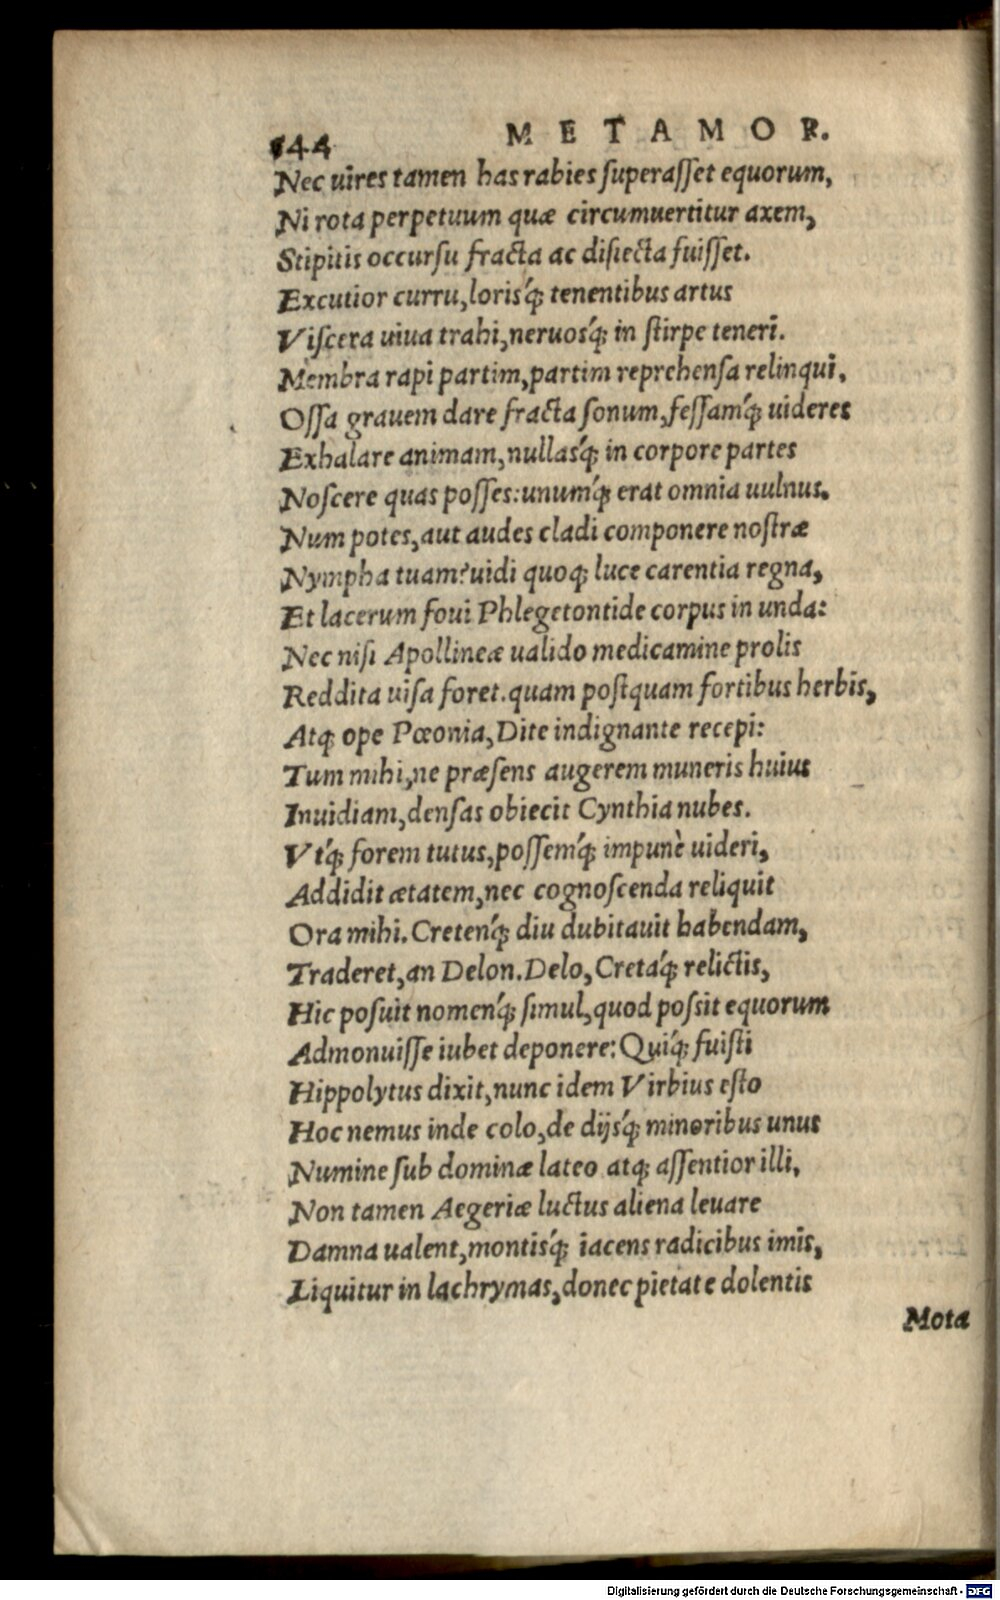 144 METAMOR.
Nec uires tamen has rabies superasset equorum,
Ni rota perpetuum quæ circumuertitur axem,
Stipitis occursu fracta ac disiecta fuisset.
Excutior curru, loris'q; tenentibus artus
Viscera uiua trahi, neruos'q; in stirpe teneri.
Membra rapi partim, partim reprehensa relinqui,
Ossa grauem dare fracta sonum, fessam'q; uideres
Exhalare animam, nullas'q; in corpore partes
Noscere quas posses: unum'q; erat omnia uulnus.
Num potes, aut audes cladi componere nostræ
Nympha tuam? uidi quoq; luce carentia regna,
Et lacerum foui Phlegetontide corpus in unda:
Nec nisi Apollineæ ualido medicamine prolis
Reddita uisa foret. quam postquam fortibus herbis,
Atq; ope Pœonia, Dite indignante recepi:
Tum mihi, ne præsens augerem muneris huius
Inuidiam, densas obiecit Cynthia nubes.
Vt'q; forem tutus, possem'q; impunè uideri,
Addidit ætatem, nec cognoscenda reliquit
Ora mihi. Creten'q; diu dubitauit habendam,
Traderet, an Delon. Delo, Creta'q; relictis,
Hic posuit nomen'q; simul, quod possit equorum
Admonuisse iubet deponere: Qui'q; fuisti
Hippolytus dixit, nunc idem Virbius esto
Hoc nemus inde colo, de dijs'q; minoribus unus
Numine sub dominæ lateo atq; assentior illi,
Non tamen Aegeriæ luctus aliena leuare
Damna ualent, montis'q; iacens radicibus imis,
Liquitur in lachrymas, donec pietate dolentis
Mota
Digitalisierung gefördert durch die Deutsche Forschungsgemeinschaft - DFG